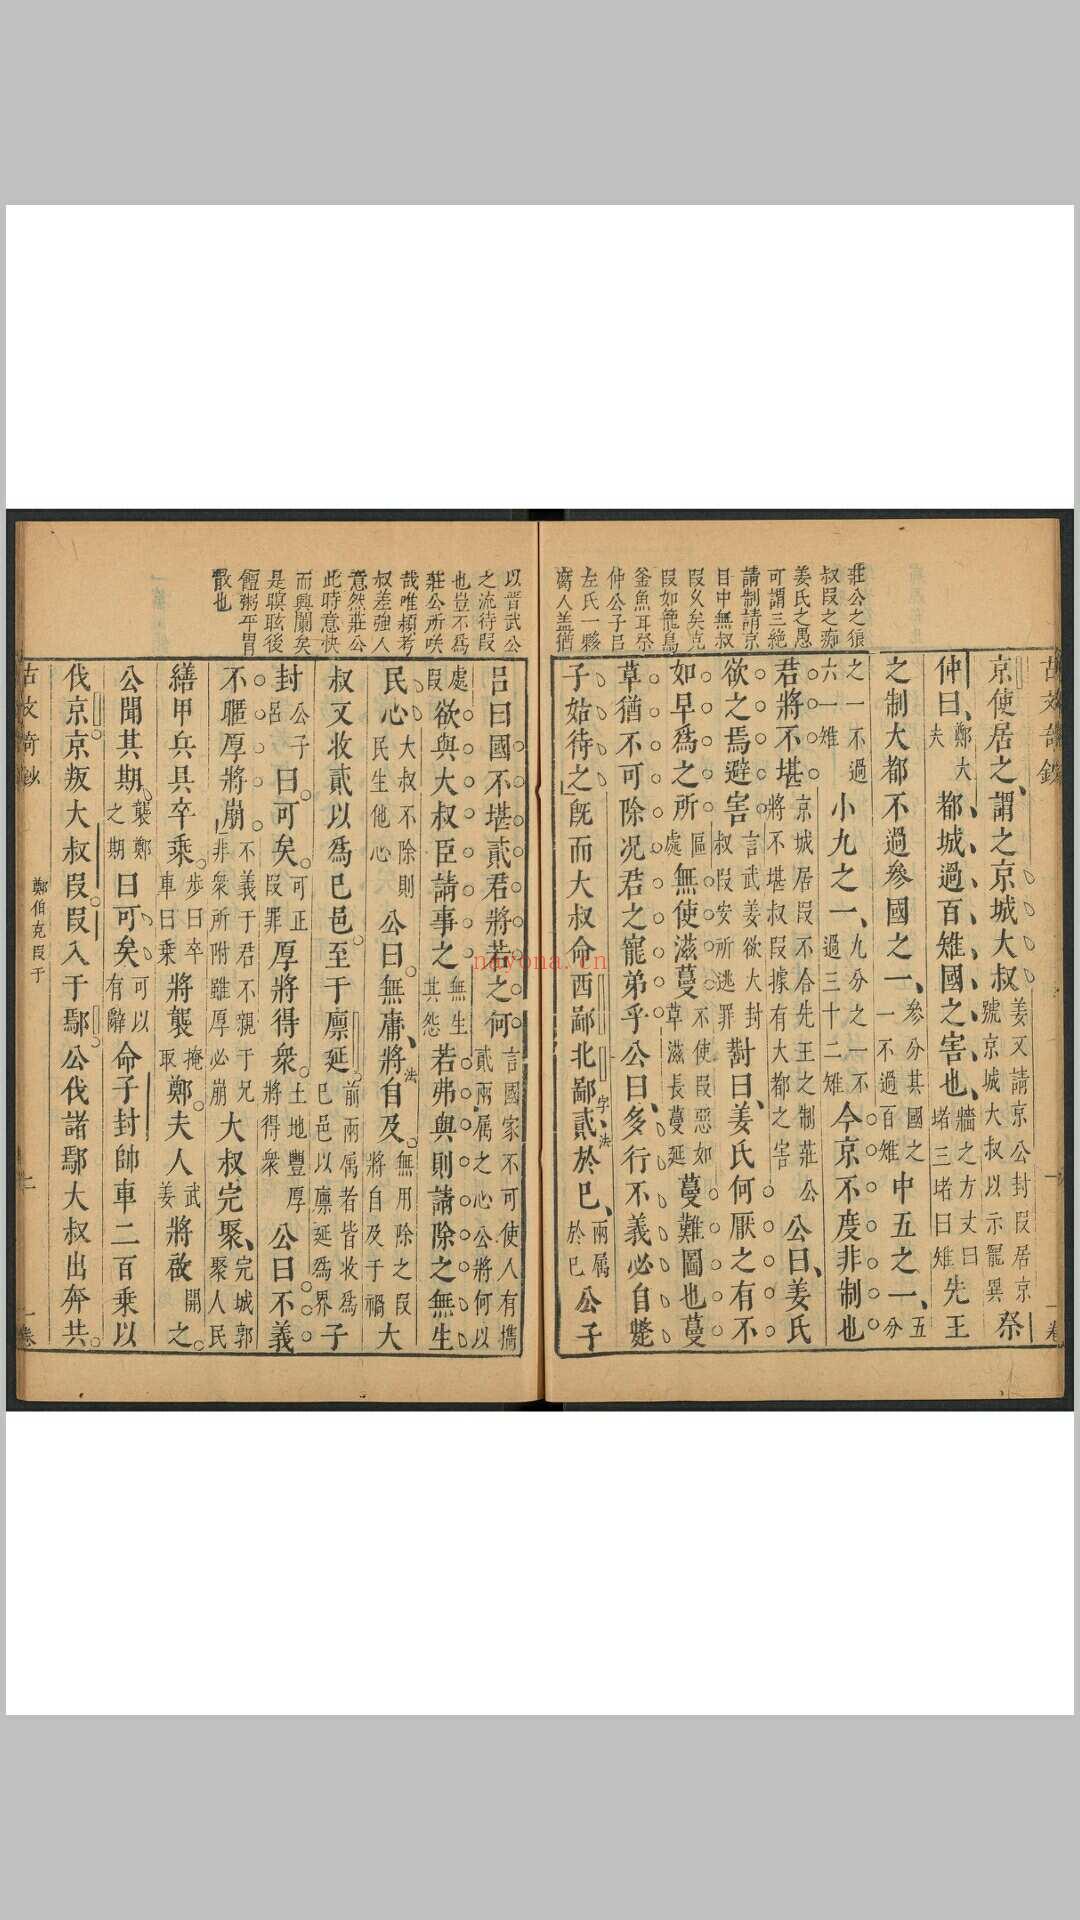 莊公之狠
叔段之痴
姜氏之愚
可謂三絶
請制請京
目中無叔
段久矣克
段如籠鳥
釜魚耳祭
仲公子呂
左氏一夥
齊人盖猶
京使居之謂之京城大叔姜又請京公封段居京號京城大叔以示寵異祭
仲曰鄭大夫都城過百雉國之害也牆之方丈曰堵三堵曰雉先王
之制大都不過參國之一參分其國之一不過百雉中五之一五分
之一不過六一雉小九之一九分之一不過三十二雉今京不度非制也
君將不堪京城居段不合先王之制莊公將不堪叔段據有大都之害公曰姜氏
欲之焉避害言武姜欲大封叔段安所逃罪對曰姜氏何厭之有不
如早爲之所區處無使滋蔓不使段惡如草滋長蔓延蔓難圖也蔓
草猶不可除况君之寵弟乎公曰多行不義必自斃
子姑待之旣而大叔命西鄙北鄙貳於已兩属於已公子
字法
以晉武公
之流待段
也豈不爲
莊公所咲
哉唯頴考
叔差強人
意然莊公
此時意快
而興闌矣
是暝眩後
饘粥平胃
散也
呂曰國不堪貳君將若之何言國家不可使人有攜貳兩属之心公將何以
處段欲與大叔臣請事之若弗與則請除之無生
無生其怨
民心大叔不除則民生他心公曰無庸將自及無用除之段將自及于禍大
法
叔又收貳以爲已邑至于廪延前兩属者皆收爲已邑以廪延爲界子
封公子呂曰可矣可正段罪厚將得衆土地豐厚將得衆公曰不義
不暱厚將崩不義于君不親于兄非衆所附雖厚必崩大叔完聚完城郭聚人民
繕甲兵具卒乘步曰卒車曰乘將襲掩取鄭夫人武姜將啟開之
公聞其期襲鄭之期曰可矣可以有辭命子封帥車二百乘以
伐京京叛大叔段段入于鄢公伐諸鄢大叔出奔共
古文奇鈔
鄭伯克段于
二
一卷
nayona.cn